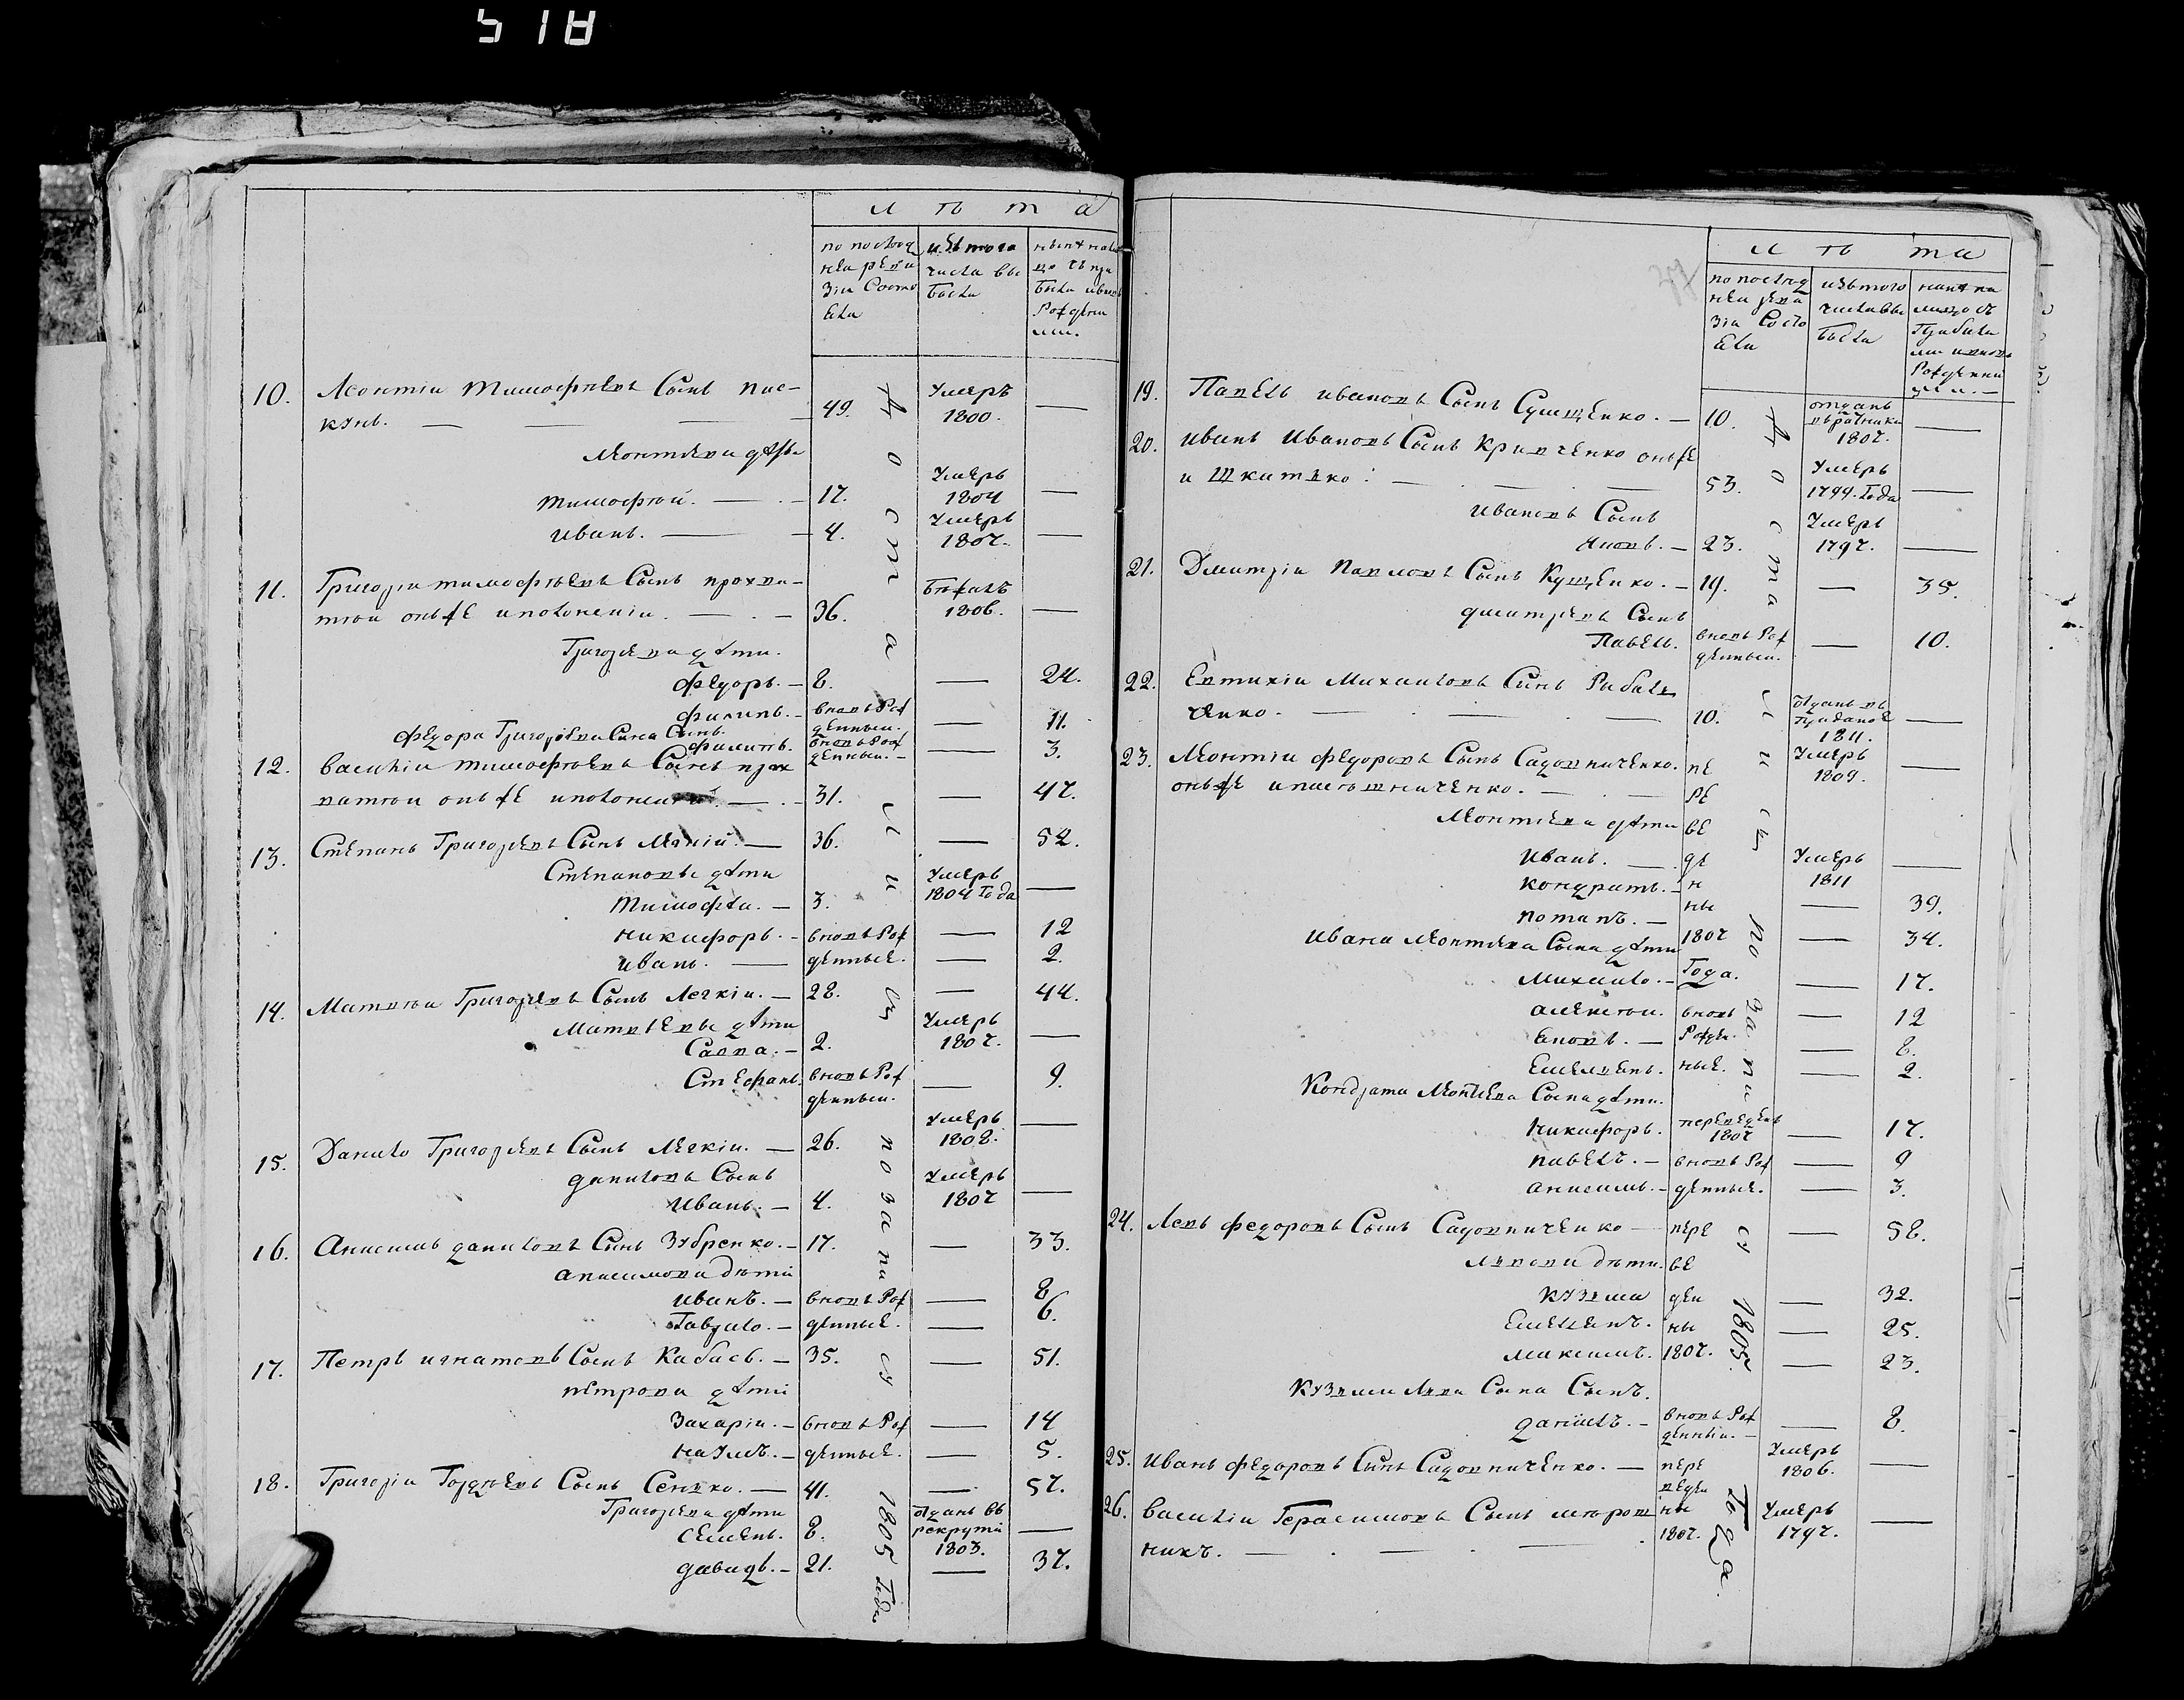 518
л ѣ т а
по послед
ней реви
зіи Состо
яли
изъ того
числа вы
были
нынѣ на ли
цо съ при
были и вновь
Рожденны
ми.
10. Леонтій Тимофѣевъ Сынъ пис-
кунъ. — — — 49. Умеръ 1800. —
Леонтьевы дѣти
тимофѣй. — 17. Умеръ 1804 —
иванъ. — 4. Умеръ 1807. —
11. Григорій тимофѣевъ Сынъ прохва-
тѣй онъже и положеній. — 36. Бѣжалъ 1806. —
Григорьевы дѣти.
федоръ. — 8. — 24.
филипъ. — вновь Рож
денный. — 11.
федора Григорьева Сына Сынъ.
филипъ. вновь Рож
денный. — 3.
12. василій тимофѣевъ Сынъ прох
ватѣй онъже и положеній. — 31. — 47.
13. Степанъ Григорьевъ Сынъ Легкій. — 36. — 52.
Степановы дѣти
тимофей. — 3. Умеръ 1804 Года —
никифоръ. — вновь Рож — 12
иванъ. — денные. — 2.
14. Матвѣй Григорьевъ Сынъ Легкій. — 28. — 44.
Матвѣевы дѣти
Савва. — 2. Умеръ 1807. —
Стефанъ. вновь Рож
денный. — 9.
15. Данило Григорьевъ Сынъ Легкій. — 26. Умеръ 1808. —
даниловъ Сынъ
Иванъ. — 4. Умеръ 1807 —
16. Анисимъ даниловъ Сынъ Зубренко. — 17. — 33.
анисимовы дѣти
иванъ. — вновь Рож — 8
Гаврило. — денные. — 6.
17. Петръ игнатовъ Сынъ Кабасъ. — 35. — 51.
петровы дѣти
Захарій. — вновь Рож — 14
наумъ. — денные. — 5.
18. Григорій Гордѣевъ Сынъ Сенько. — 41. — 57.
Григорьевы дѣти
Семенъ. 8. Отданъ въ
рекруты
1803. —
давидъ. — 21. — 37.
достались по записи 1805 Года
л ѣ та
по послед
ней реви
зіи Состо
яли
изъ того
числа вы
были
нынѣ на
лицо съ
Прибыли
ми и вновь
Рожденны
ми. —
19. Павелъ ивановъ Сынъ Сущенко. — 10. отданъ
въ ратники
1807. —
20. иванъ Ивановъ Сынъ Кривченко онъже
и Шкитько: — — — 53. Умеръ 1799. Года —
Ивановъ Сынъ
Яковъ. — 23. Умеръ 1797. —
21. Дмитрій Павловъ Сынъ Кущенко. — 19. — 35.
дмитріевъ Сынъ
Павелъ. вновь Рож
денный. — 10.
22. Евтихій Михайловъ Сынъ Рибаль
ченко. — — — 10. Отданъ въ
1811. —
23. Леонтій федоровъ Сынъ Садовниченко. Умеръ 1809. —
онъже
Леонтьевы дѣти
Иванъ. — Умеръ 1811 —
кондратъ. — — 39.
потапъ. — — 34.
переведены 1807 Года.
Ивана Леонтьева Сына дѣти
Михайло. — — 17.
алексѣй. — 12
вновь Рожденные.
Емельянъ. — 2.
Кондрата Леонтьева Сына дѣти.
Никифоръ. переведенъ
1807 — 17.
павелъ. — вновь Рож — 9
анисимъ. — денные. — 3.
24. Левъ федоровъ Сынъ Садовниченко — пере — 58.
львовы дѣти. ве
кузьма ден — 32.
Емельянъ. ны — 25.
максимъ. 1807. — 23.
Кузьмы Льва Сына Сынъ.
данилъ. — вновь Рож
денный. — — 8.
25. Иванъ федоровъ Сынъ Садовниченко. — пере
веден Умеръ 1806. —
26. василій Герасимовъ Сынъ мѣрош
никъ. — — — ны 1807. Умеръ 1797. —
достались по записи 1805. Года.